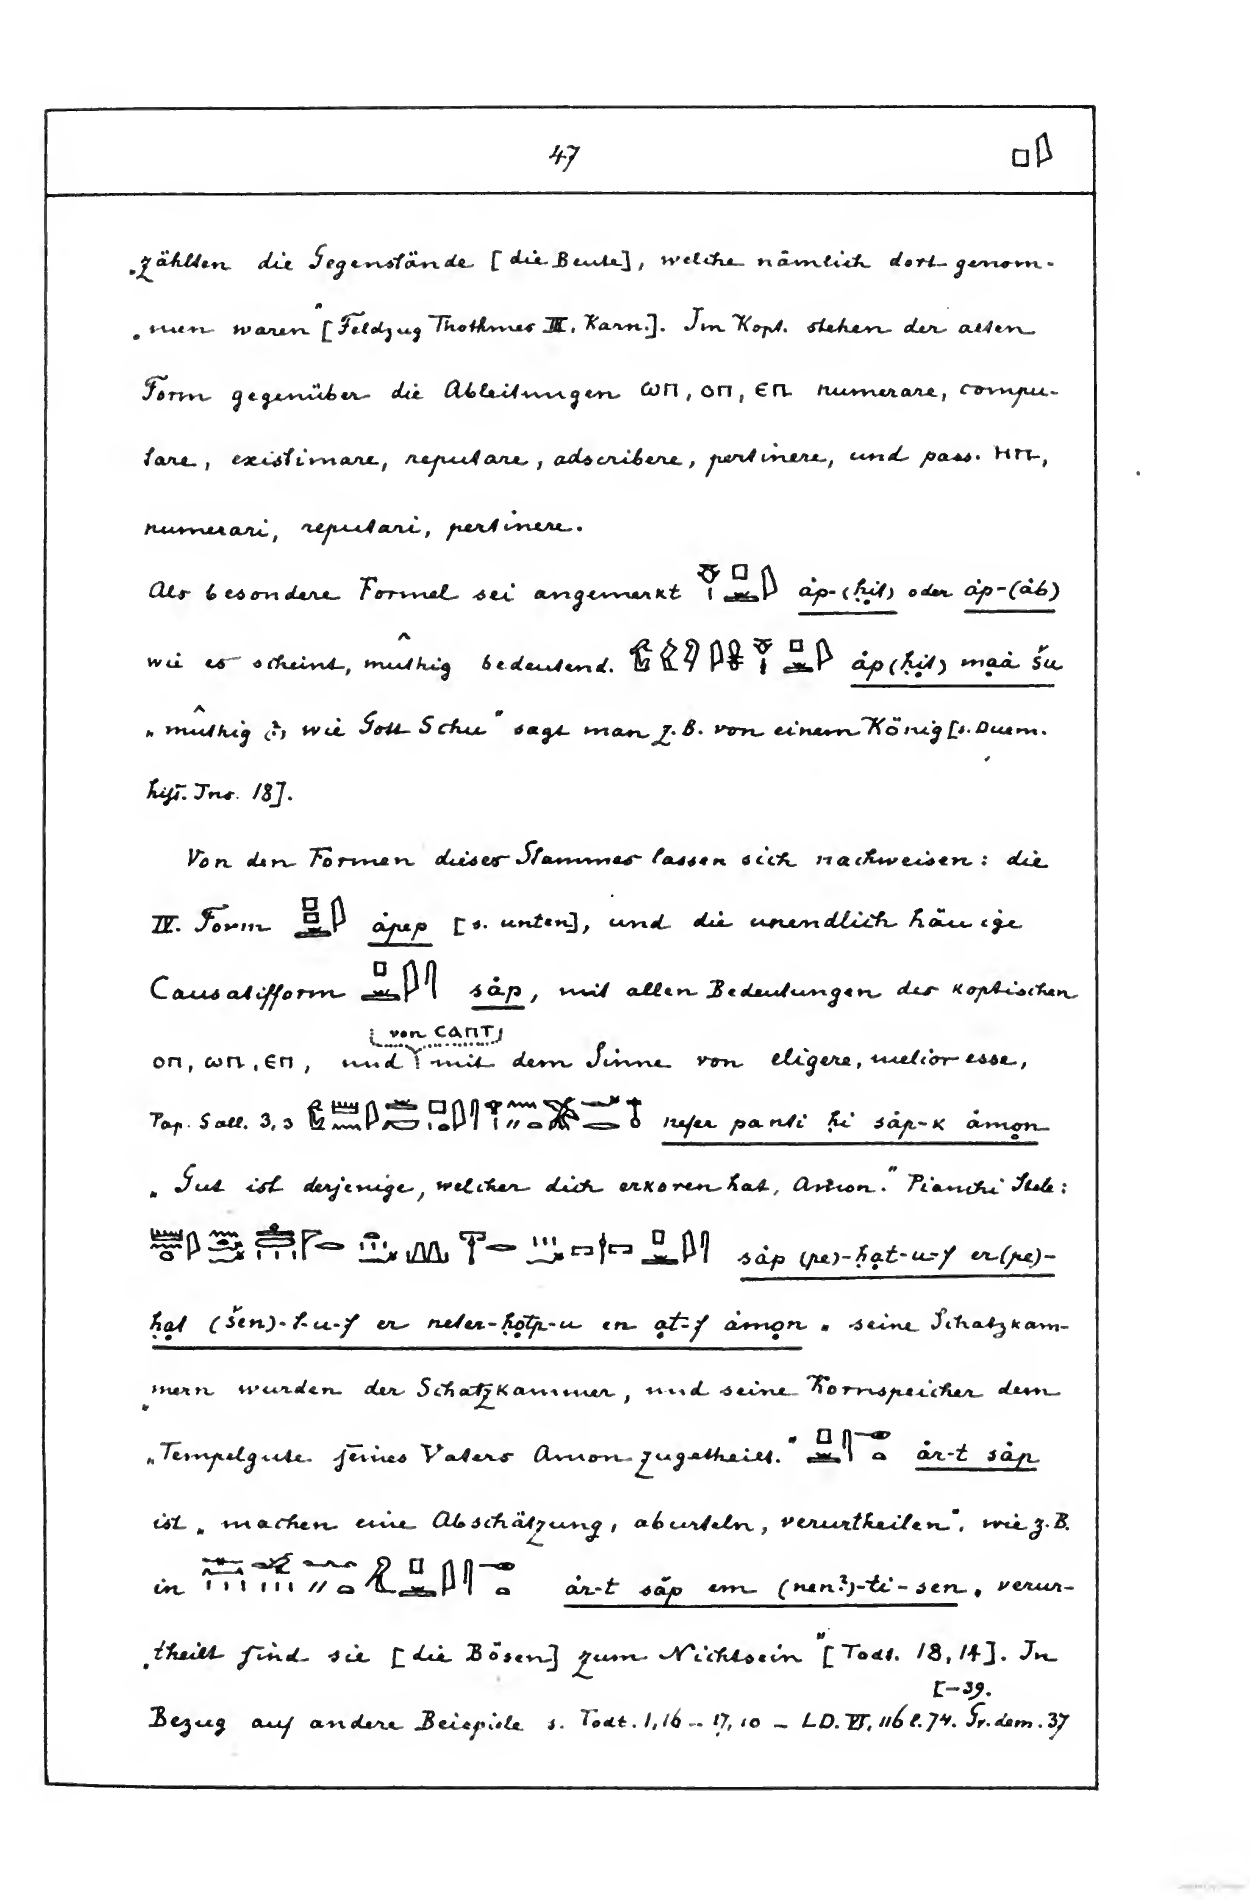 47
„zählten die Gegenstände [die Beute], welche nämlich dort genom-
„men waren" [Feldzug Thothmes III. Karn.]. Im Kopt. stehen der alten
Form gegenüber die Ableitungen ⲱⲡ, ⲟⲡ, ⲉⲡ numerare, compu-
tare, existimare, reputare, adscribere, pertinere, und pass. ⲏⲡ,
numerari, reputari, pertinere.
Als besondere Formel sei angemerkt åp-(ḥit) oder åp-(åb)
wie es scheint, muthig bedeutend. åp(ḥit) mạå šu
„muthig (?) wie Gott Schu" sagt man z.B. von einem König [s. Duem.
hist. Ins. 18].
Von den Formen dieses Stammes lassen sich nachweisen: die
IV. Form åpep [s. unten], und die unendlich häu ige
Causatifform såp, mit allen Bedeutungen des koptischen
von ⲥⲁⲡⲧ
ⲟⲡ, ⲱⲡ, ⲉⲡ, und mit dem Sinne von eligere, melior esse,
Pap. Sall. 3,3 nefer panti ḥi såp-k åmọn
„Gut ist derjenige, welcher dich erkoren hat, Amon." Pianchi Stele:
såp (pe)-ḥạt-u-f er (pe)-
ḥạt (šen)-t-u-f er neter-ḥọtp-u en ạt-f åmọn „seine Schatzkam-
„mern wurden der Schatzkammer, und seine Kornspeicher dem
„Tempelgute seines Vaters Amon zugetheilt." år-t såp
ist „machen eine Abschätzung, aburteln, verurtheilen", wie z.B.
in år-t såp em (nen?)-ti-sen „verur-
„theilt sind sie [die Bösen] zum Nichtsein" [Todt. 18,14]. In
[-39.
Bezug auf andere Beispiele s. Todt. 1,16 – 17,10 – LD. VI, 116 l. 74. Gr. dem. 37